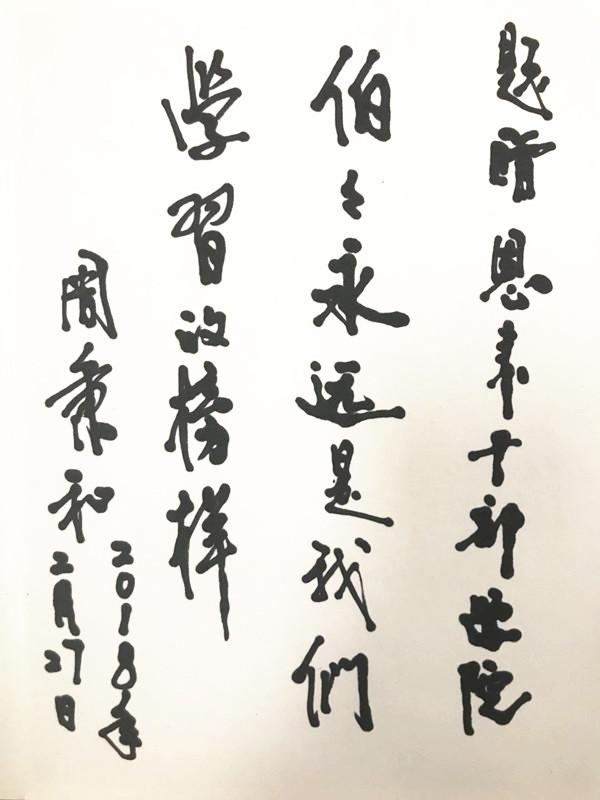 题赠恩来干部学院
伯々永远是我們
學習的榜样
周秉和
2018年
二月27日